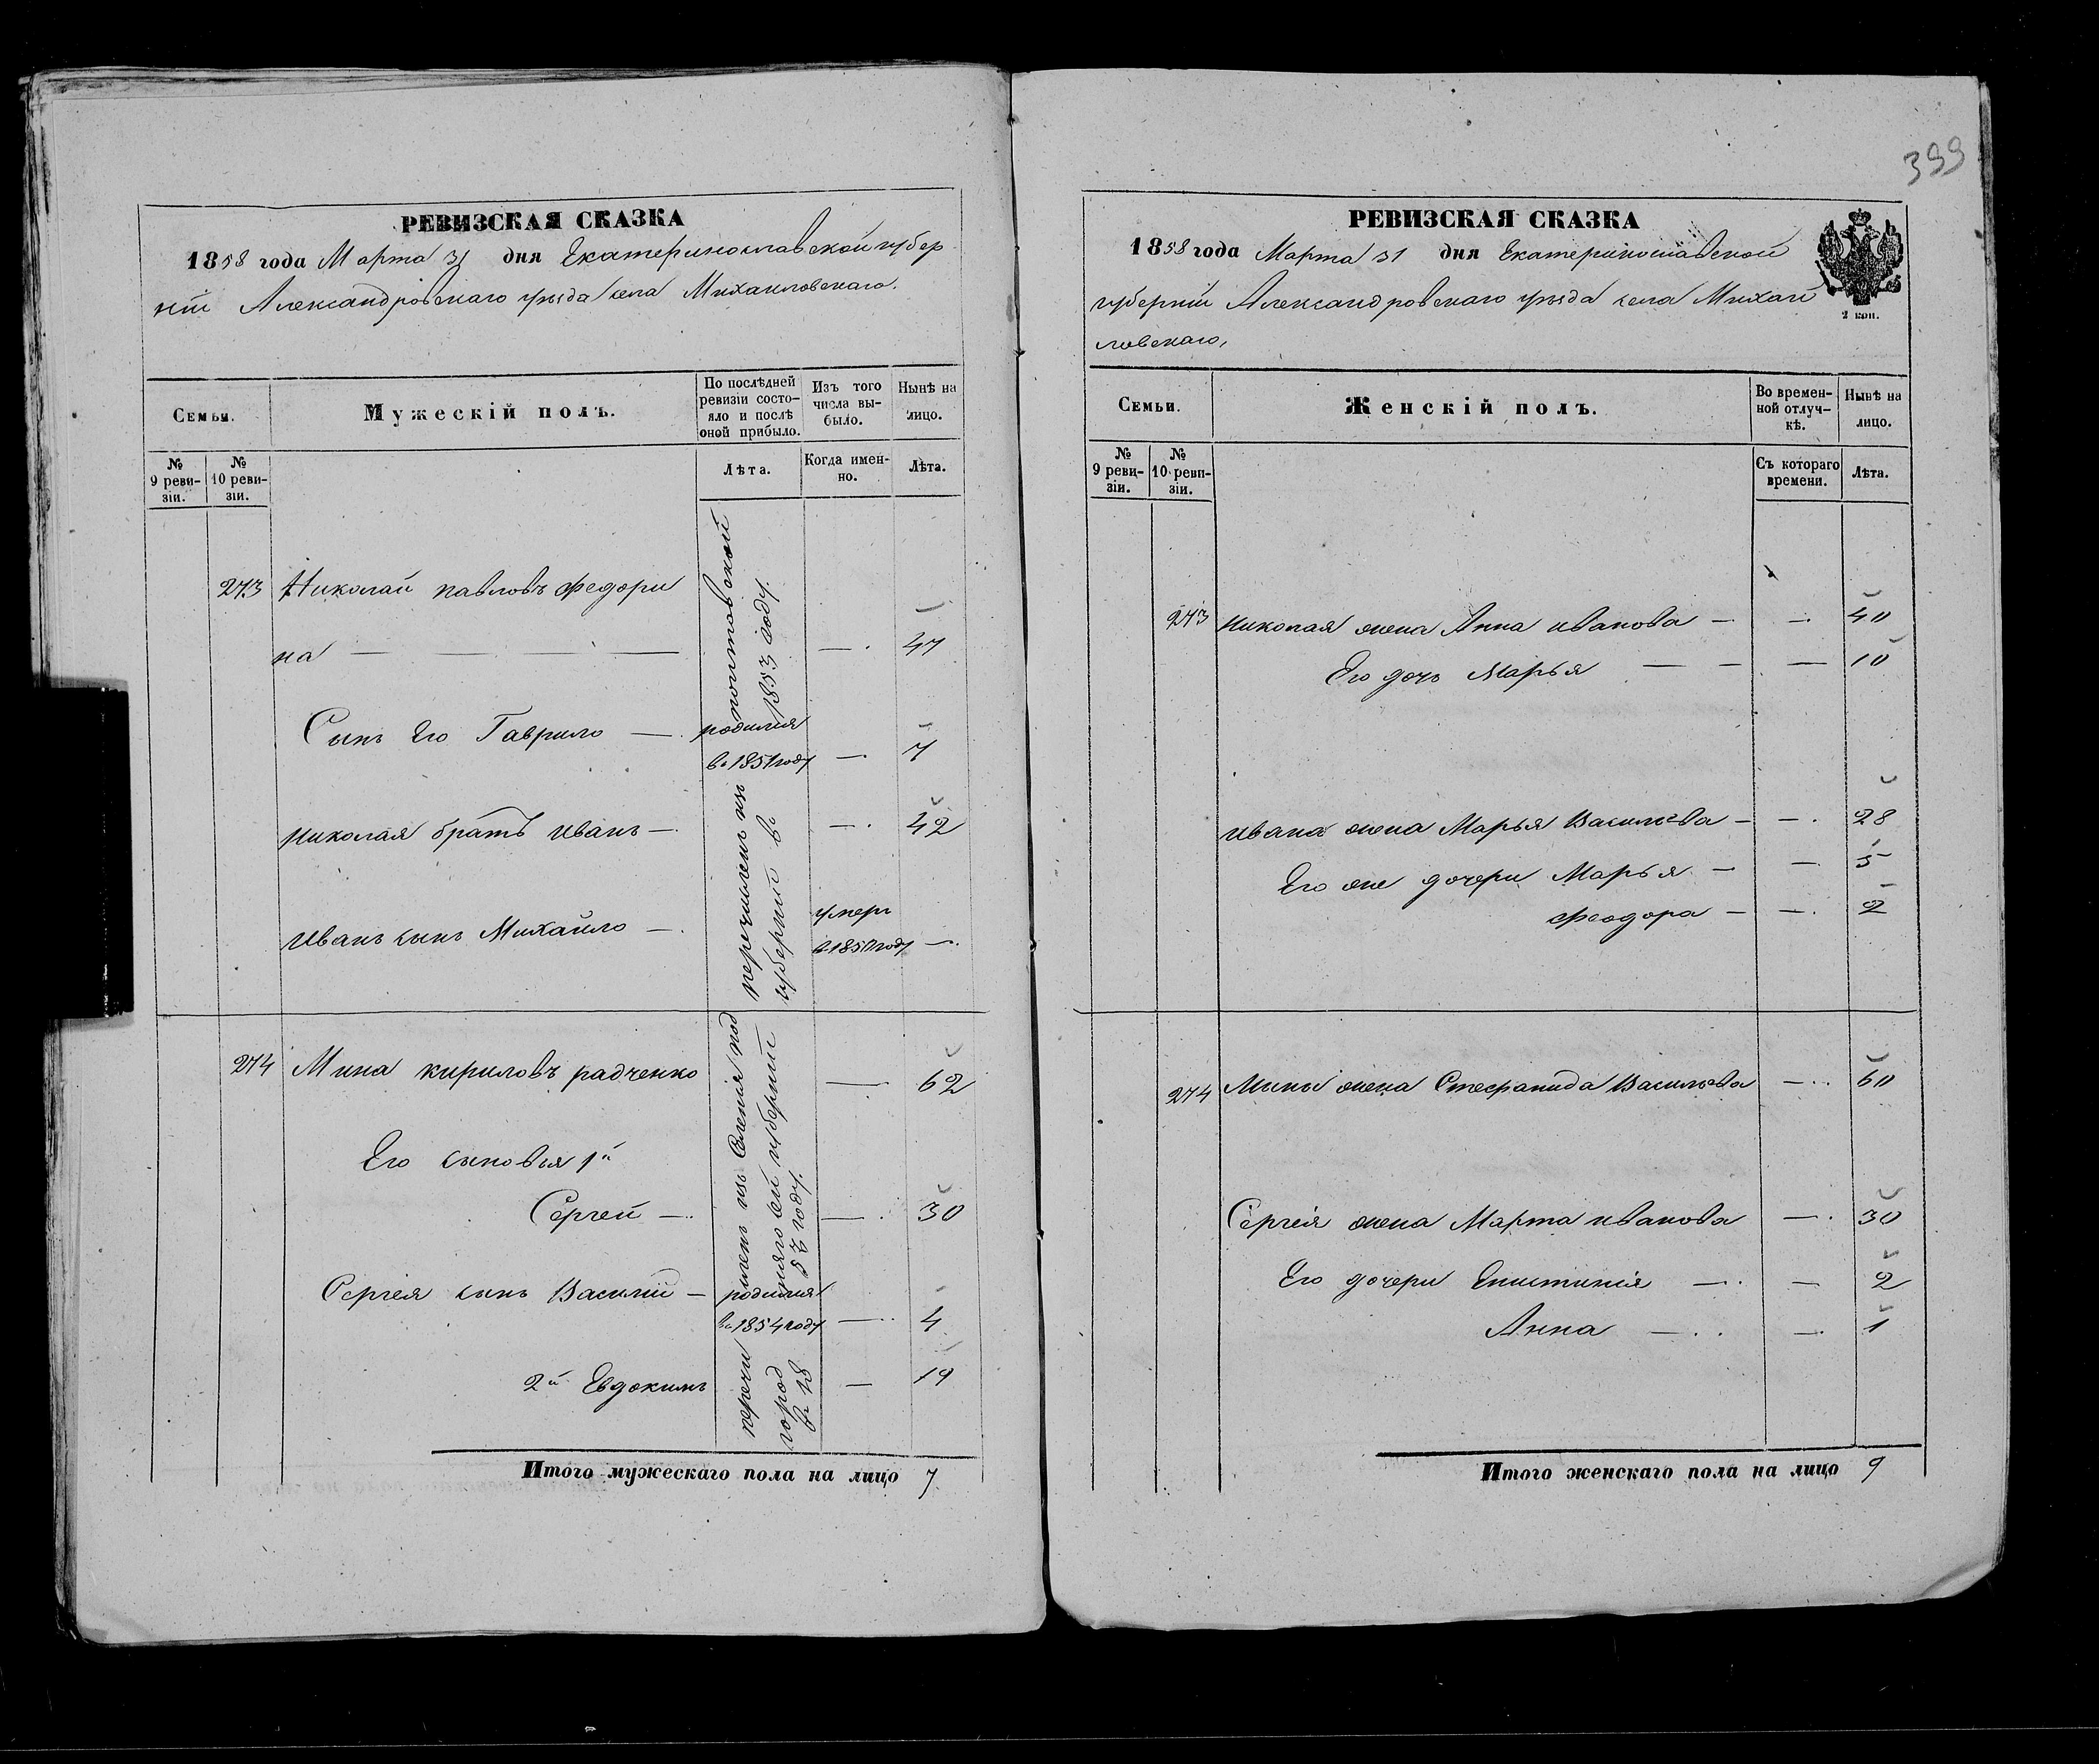 399
РЕВИЗСКАЯ СКАЗКА
1858 года Марта 31 дня Екатеринославской губер
ніи Александровскаго уѣзда села Михаиловскаго.
Семьи.
Мужескій полъ.
По послѣдней
ревизіи состо-
яло и послѣ
оной прибыло.
Изъ того
числа вы-
было.
Нынѣ на
лицо.
№
9 реви-
зіи.
№
10 реви-
зіи.
Лѣта.
Когда имен-
но.
Лѣта.
273 Николай павловъ Федори
на — — — — — . 47
перечисленъ изъ полтавской
губерніи въ 1853 году.
Сынъ Его Гаврило — родился
въ 1851 году — . 7
николая братъ иванъ — . — . 42
иванъ сынъ Михайло — . умеръ
въ 1857 году — .
274 Мина кириловъ радченко — 62
перечисленъ изъ Селенія под
городняго сей губерніи
въ 1857 году.
Его сыновья 1й
Сергей — . — . 30
Сергея сынъ Василій — родился
въ 1854 году — . . 4
2й Евдокимъ — 19
Итого мужескаго пола на лицо 7
РЕВИЗСКАЯ СКАЗКА
1858 года Марта 31 дня Екатеринославской
губерніи Александровскаго уѣзда села Михаи
ловскаго,
2 коп.
Семьи.
Женскій полъ.
Во времен-
ной отлуч-
кѣ.
Нынѣ на
лицо.
№
9 реви-
зіи.
№
10 реви-
зіи.
Съ котораго
времени.
Лѣта.
273 николая жена Анна иванова — . — . 40
Его дочь Марья — — — 10
ивана жена Марья Васильева — — . 28
Его же дочери Марья — — . 5
Феодора — — . 2
274 Мины жена Стефанида Васильева — . . 60
Сергея жена Марта иванова — . 30
Его дочери Епистинія — . — 2
Анна — . . — . 1
Итого женскаго пола на лицо 9